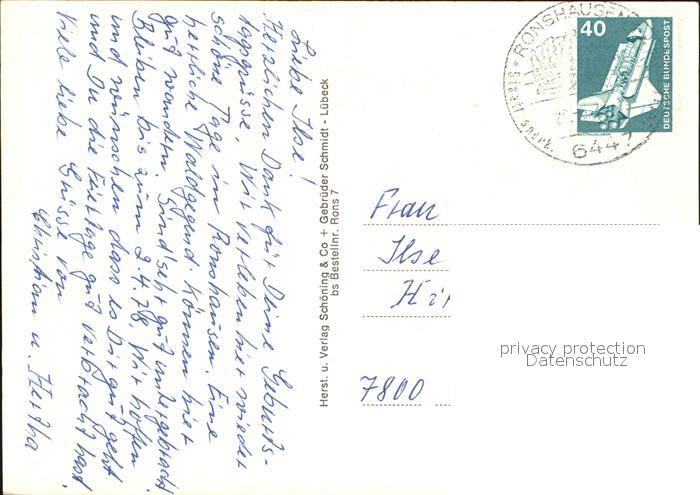 Liebe Ilse!
Herzlichen Dank für Deine Geburts-
tagsgrüsse. Wir verleben hier wieder
schöne Tage in Ronshausen. Eine
herrliche Waldgegend. Können hier
gut wandern. Sind sehr gut untergebracht
Bleiben bis zum 2.4.78. Wir hoffen
und wünschen dass es Dir gut geht
und Du die Feiertage gut verbracht hast.
Viele liebe Grüsse von
Christian u. Hertha
Herst. u. Verlag Schöning & Co + Gebrüder Schmidt - Lübeck
bs Bestellnr. Rons 7
RONSHAUSEN
Staatl. anerk.
6447
40
DEUTSCHE BUNDESPOST
Frau
Ilse
7800
privacy protection
Datenschutz